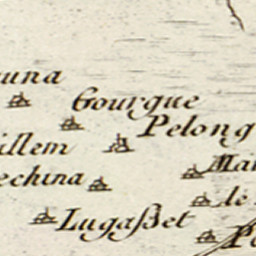 una
Gourgue
Pelong
illem
Mai
echina
le
Lugaßet
Pe